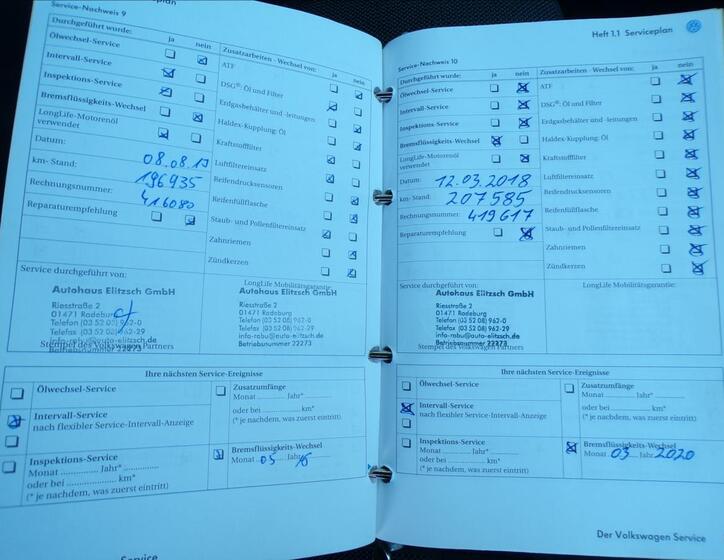 plan
Service-Nachweis 9
Durchgeführt wurde:
ja nein
Ölwechsel-Service
Intervall-Service
Inspektions-Service
Bremsflüssigkeits-Wechsel
LongLife-Motorenöl
verwendet
Datum:
08.08.17
km- Stand:
196935
Rechnungsnummer:
416080
Reparaturempfehlung
Zusatzarbeiten - Wechsel von:
ja nein
ATF
DSG®: Öl und Filter
Erdgasbehälter und -leitungen
Haldex-Kupplung: Öl
Kraftstofffilter
Luftfiltereinsatz
Reifendrucksensoren
Reifenfüllflasche
Staub- und Pollenfiltereinsatz
Zahnriemen
Zündkerzen
Service durchgeführt von:
Autohaus Elitzsch GmbH
Riesstraße 2
01471 Radeburg
Telefon (03 52 08) 962-0
Telefax (03 52 08) 962-29
info-rabu@auto-elitzsch.de
Betriebsnummer 22273
Stempel des Volkswagen Partners
LongLife Mobilitätsgarantie:
Autohaus Elitzsch GmbH
Riesstraße 2
01471 Radeburg
Telefon (03 52 08) 962-0
Telefax (03 52 08) 962-29
info-rabu@auto-elitzsch.de
Betriebsnummer 22273
Ihre nächsten Service-Ereignisse
Ölwechsel-Service
Intervall-Service
nach flexibler Service-Intervall-Anzeige
Inspektions-Service
Monat ............ Jahr* ..............
oder bei .................. km*
(* je nachdem, was zuerst eintritt)
Zusatzumfänge
Monat ........ Jahr* ........
oder bei ............ km*
(* je nachdem, was zuerst eintritt)
Bremsflüssigkeits-Wechsel
Monat 05 Jahr
Service
Heft 1.1 Serviceplan
Service-Nachweis 10
Durchgeführt wurde: ja nein
Ölwechsel-Service
Intervall-Service
Inspektions-Service
Bremsflüssigkeits-Wechsel
LongLife-Motorenöl
verwendet
Datum: 12.03.2018
km- Stand: 207585
Rechnungsnummer: 419617
Reparaturempfehlung
Zusatzarbeiten - Wechsel von: ja nein
ATF
DSG®: Öl und Filter
Erdgasbehälter und -leitungen
Haldex-Kupplung: Öl
Kraftstofffilter
Luftfiltereinsatz
Reifendrucksensoren
Reifenfüllflasche
Staub- und Pollenfiltereinsatz
Zahnriemen
Zündkerzen
Service durchgeführt von:
Autohaus Elitzsch GmbH
Riesstraße 2
01471 Radeburg
Telefon (03 52 08) 962-0
Telefax (03 52 08) 962-29
info-rabu@auto-elitzsch.de
Betriebsnummer 22273
Stempel des Volkswagen Partners
LongLife Mobilitätsgarantie:
Ihre nächsten Service-Ereignisse
Ölwechsel-Service
Intervall-Service
nach flexibler Service-Intervall-Anzeige
Inspektions-Service
Monat ............ Jahr* ............
oder bei .................. km*
(* je nachdem, was zuerst eintritt)
Zusatzumfänge
Monat ........ Jahr* ........
oder bei ............ km*
(* je nachdem, was zuerst eintritt)
Bremsflüssigkeits-Wechsel
Monat 03 Jahr 2020
Der Volkswagen Service